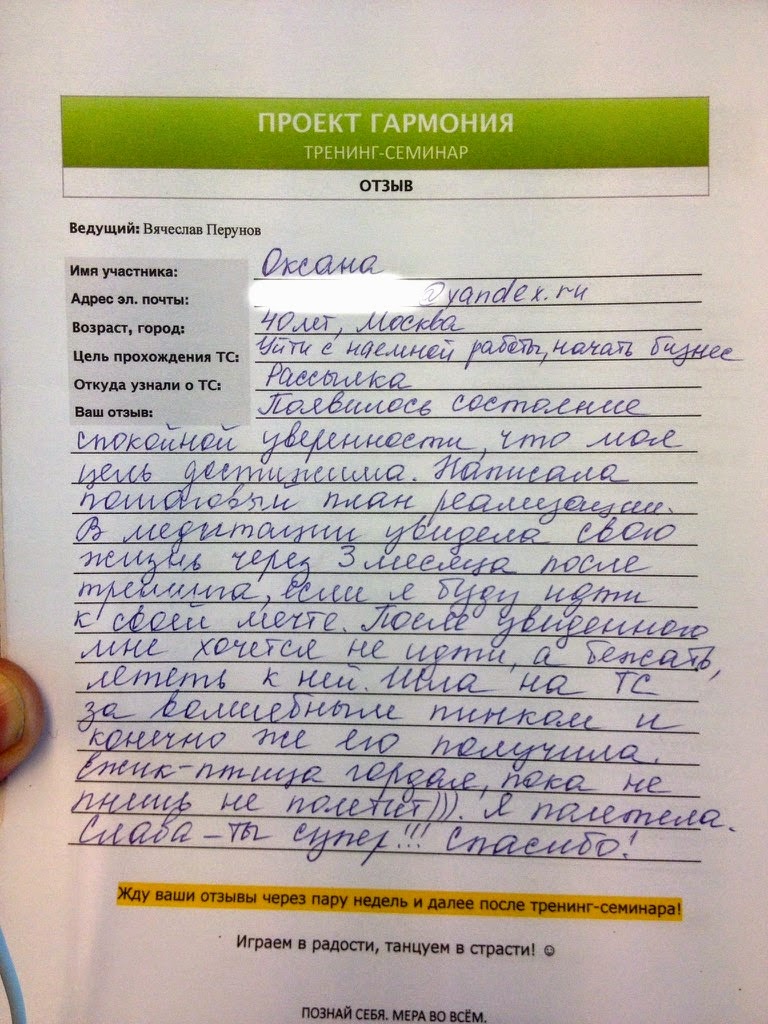 ПРОЕКТ ГАРМОНИЯ
ТРЕНИНГ-СЕМИНАР
ОТЗЫВ
Ведущий: Вячеслав Перунов
Имя участника: Оксана
Адрес эл. почты: @yandex.ru
Возраст, город: 40 лет, Москва
Цель прохождения ТС: Уйти с наемной работы, начать бизнес
Откуда узнали о ТС: Рассылка
Ваш отзыв: Появилось состояние
спокойной уверенности, что моя
цель достижима. Написала
пошаговый план реализации.
В медитации увидела свою
жизнь через 3 месяца после
тренинга, если я буду идти
к своей мечте. После увиденного
мне хочется не идти, а бежать,
лететь к ней. Шла на ТС
за волшебным пинком и
конечно же его получила.
Ежик-птица гордая, пока не
пнешь не полетит))). Я полетела.
Слава – ты супер!!! Спасибо!
Жду ваши отзывы через пару недель и далее после тренинг-семинара!
Играем в радости, танцуем в страсти! ☺
ПОЗНАЙ СЕБЯ. МЕРА ВО ВСЁМ.